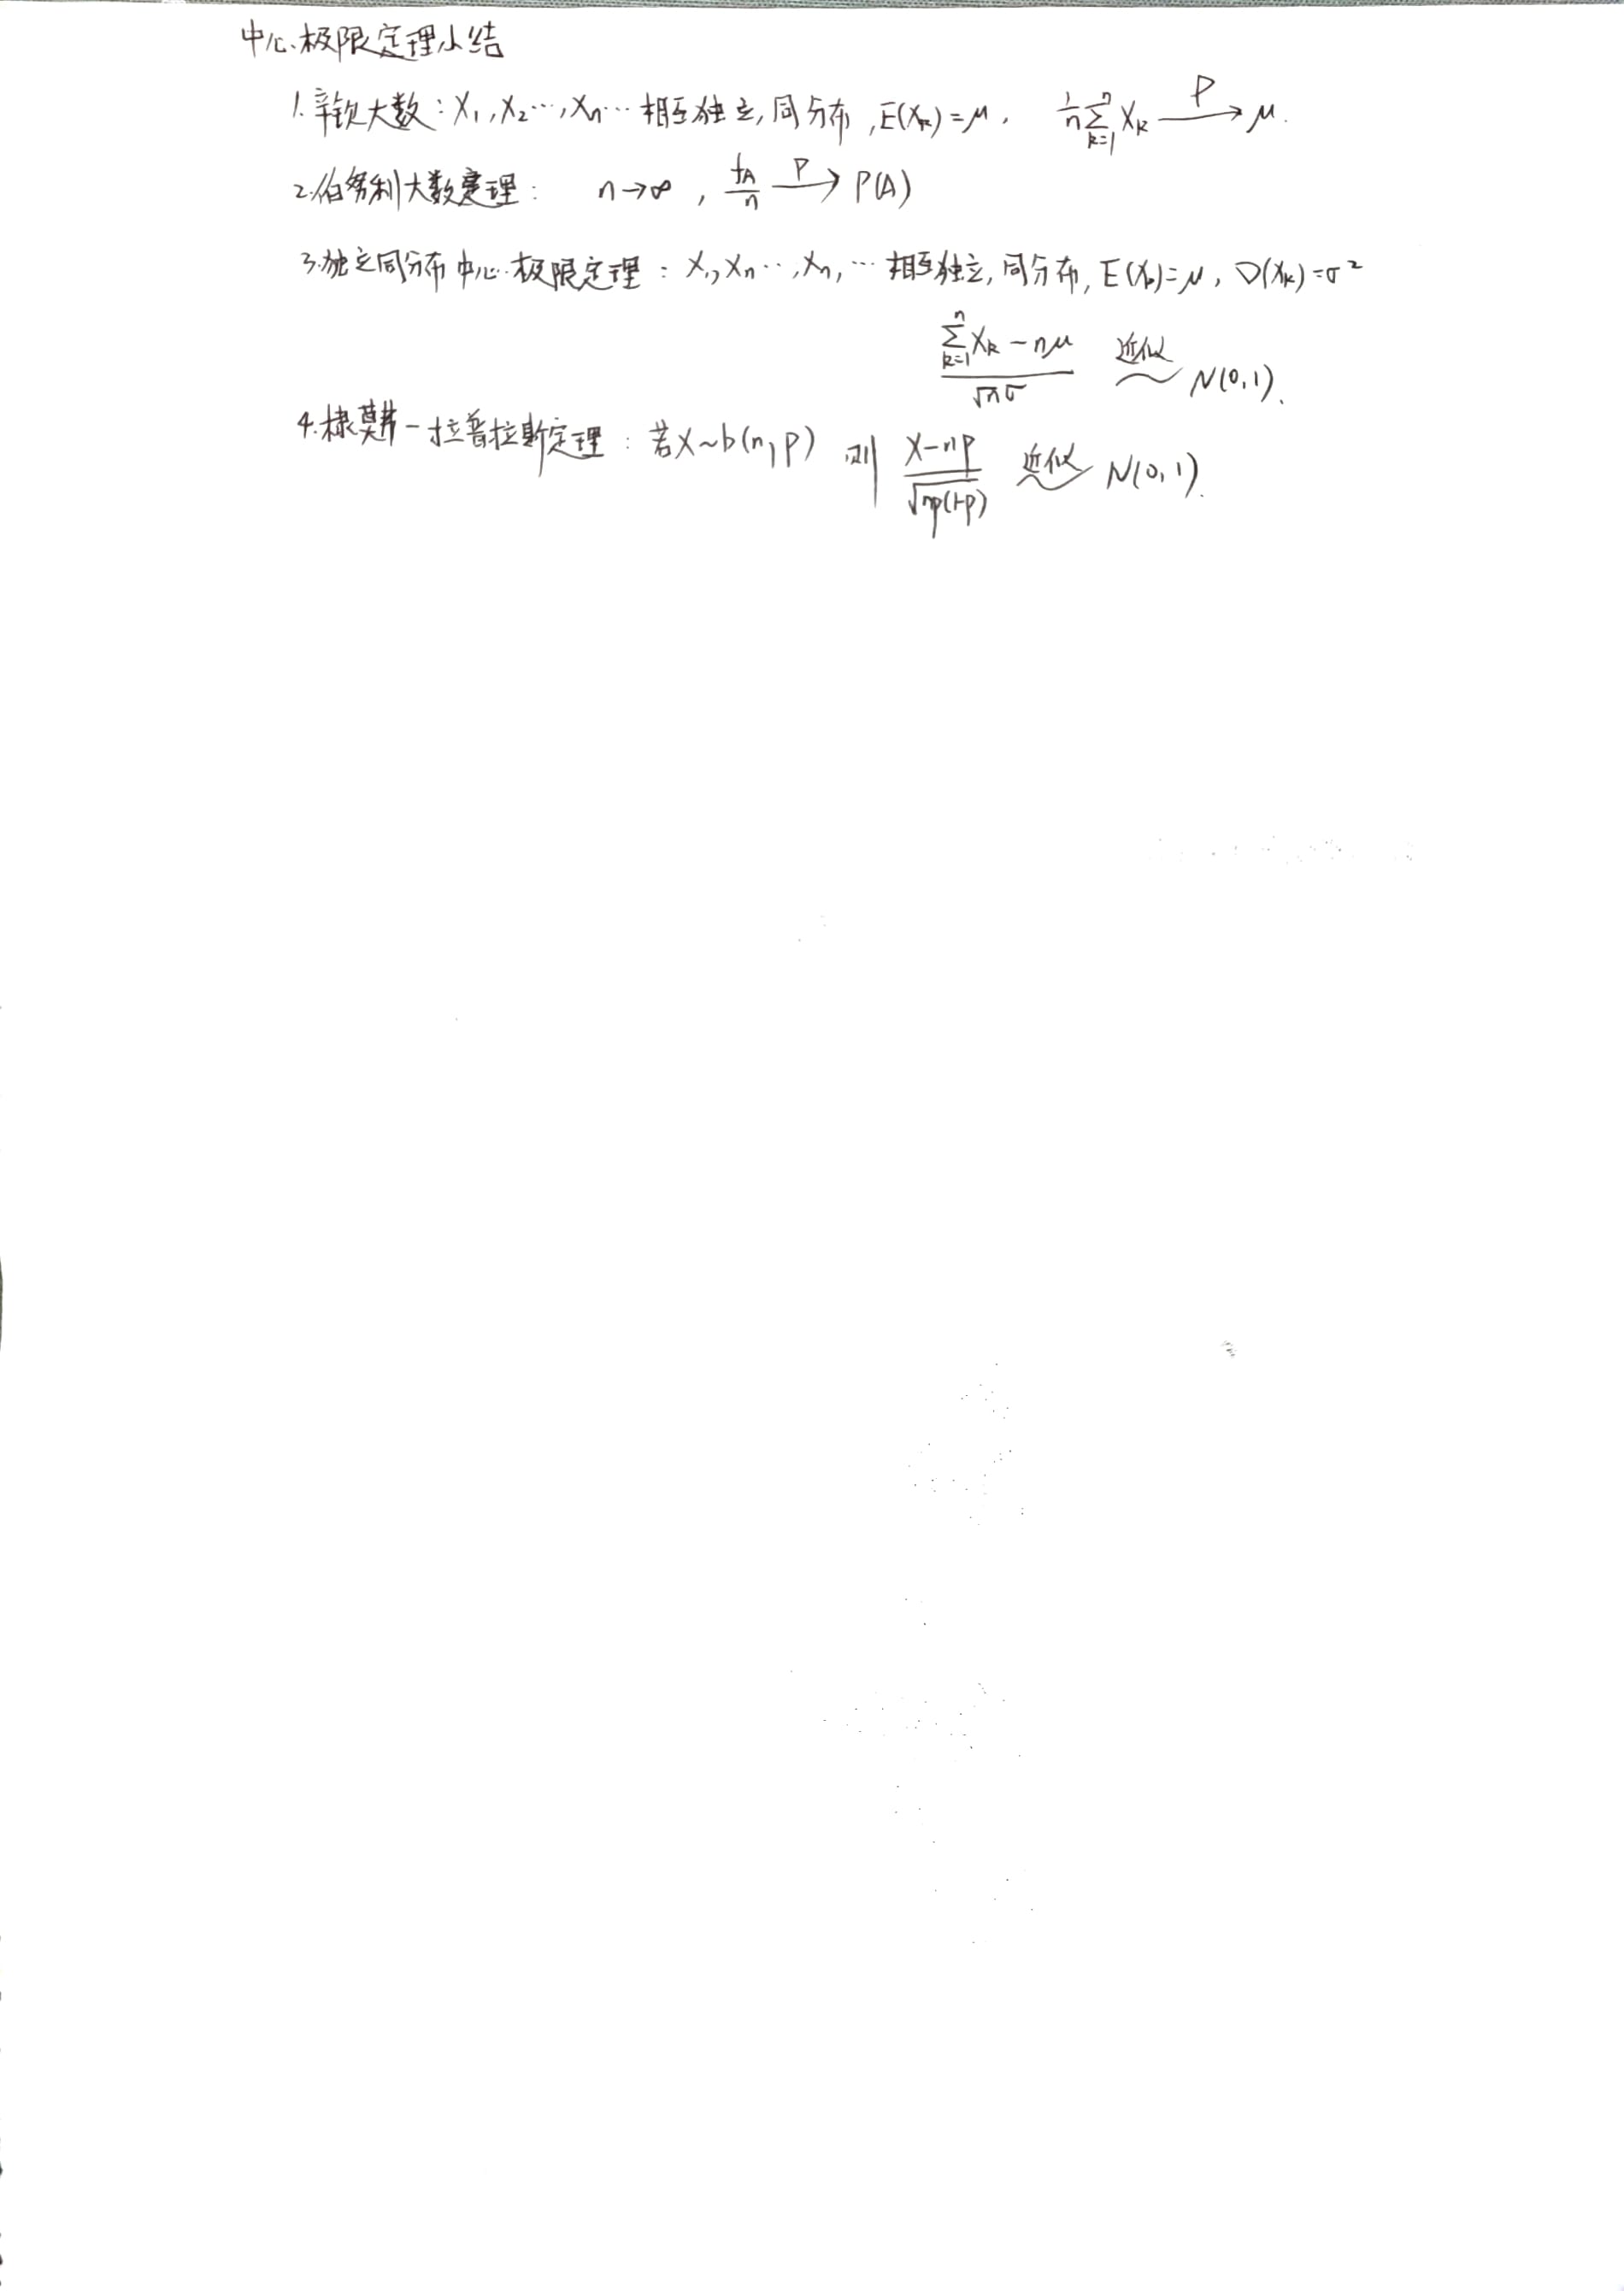 中心极限定理小结
1. 辛钦大数: X₁, X₂ ⋯, Xₙ ⋯ 相互独立, 同分布, E(Xₖ)=μ, $\frac{1}{n}\sum_{k=1}^{n} X_k \xrightarrow{P} \mu$.
2. 伯努利大数定理: n→∞, $\frac{f_A}{n} \xrightarrow{P} P(A)$
3. 独立同分布中心极限定理: X₁, Xₙ ⋯, Xₙ, ⋯ 相互独立, 同分布, E(Xₖ)=μ, D(Xₖ)=σ²
$\frac{\sum_{k=1}^{n} X_k - n\mu}{\sqrt{n}\sigma} \overset{近似}{\sim} N(0,1)$.
4. 棣莫弗-拉普拉斯定理: 若X~b(n,p) 则 $\frac{X-np}{\sqrt{np(1-p)}} \overset{近似}{\sim} N(0,1)$.